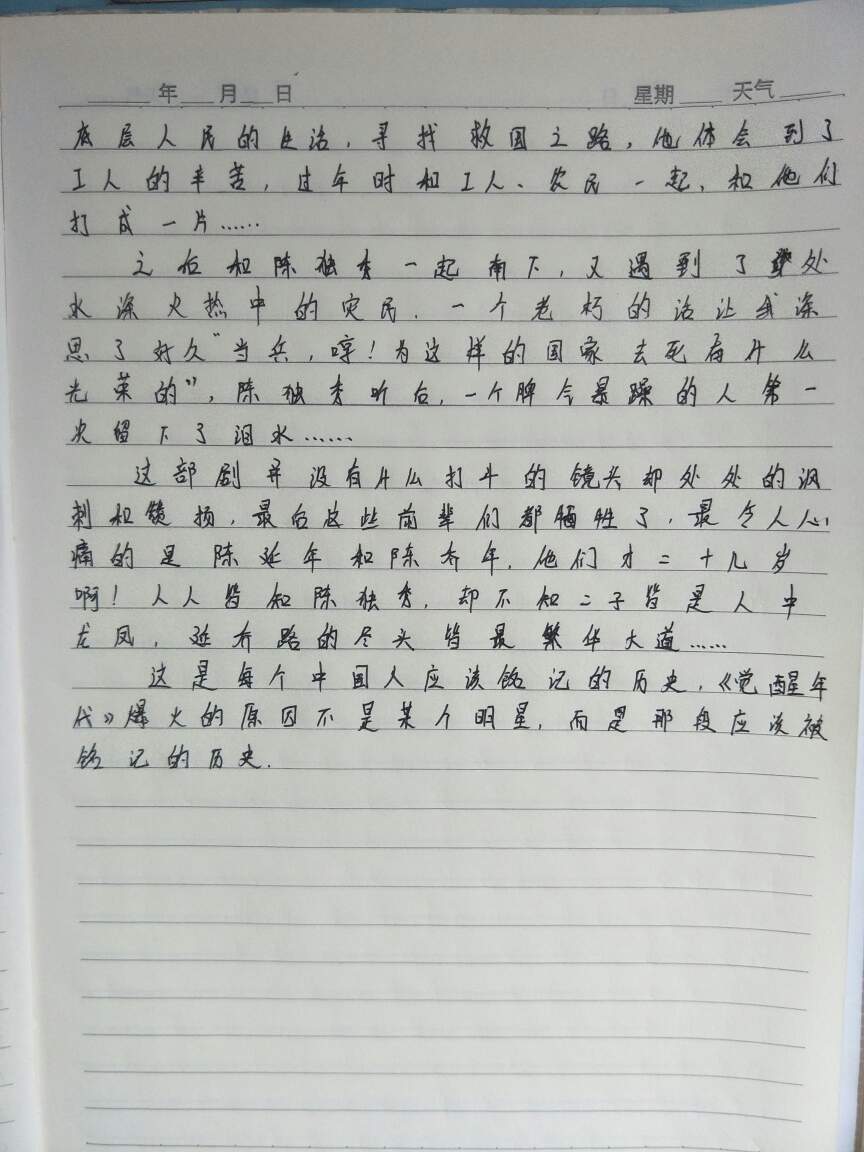 年 月 日 星期 天气
底层人民的生活，寻找救国之路，他体会到了
工人的辛苦，过年时和工人、农民一起，和他们
打成一片……
之后和陈独秀一起南下，又遇到了处
水深火热中的灾民，一个老朽的话让我深
思了好久"当兵，哼！为这样的国家去死有什么
光荣的"，陈独秀听后，一个脾气暴躁的人第一
次留下了泪水……
这部剧并没有什么打斗的镜头却处处的讽
刺和赞扬，最后这些前辈们都牺牲了，最令人心
痛的是陈延年和陈乔年，他们才二十几岁
啊！人人皆知陈独秀，却不知二子皆是人中
龙凤，延乔路的尽头皆最繁华大道……
这是每个中国人应该铭记的历史，《觉醒年
代》爆火的原因不是某个明星，而是那段应该被
铭记的历史.